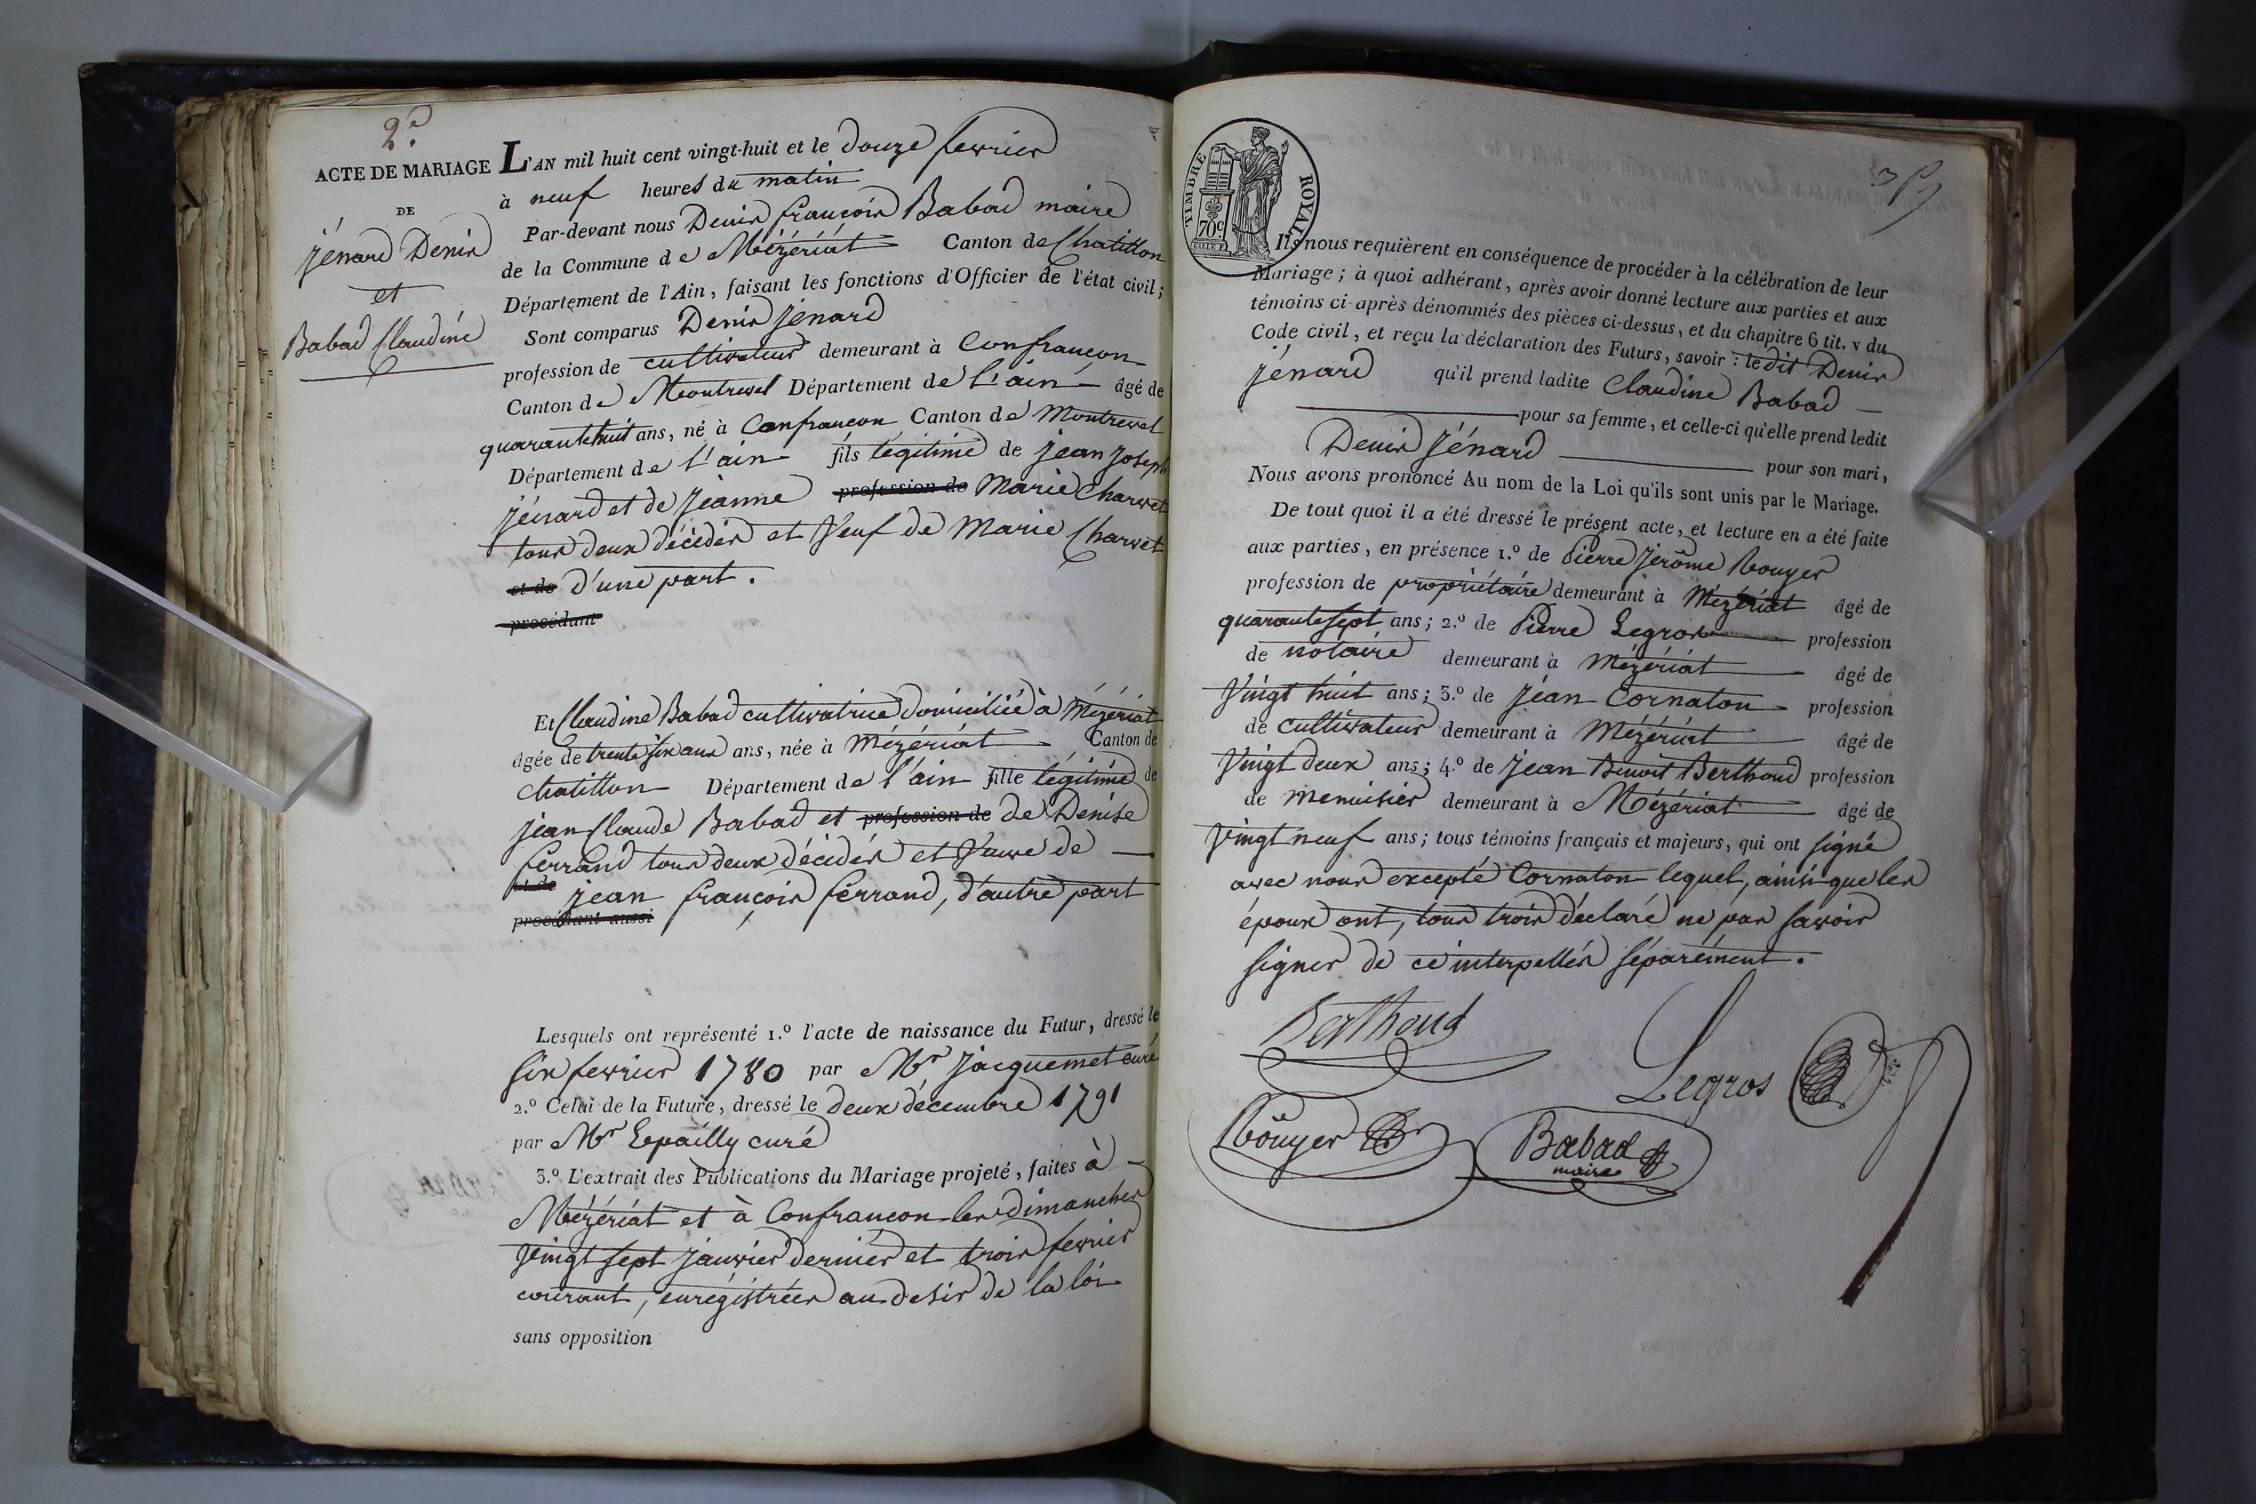 2.e
ACTE DE MARIAGE
DE
jénard Denis
et
Babad Claudine
L'AN mil huit cent vingt-huit et le douze fevrier
à neuf heures du matin
Par-devant nous Denis françois Babad maire
de la Commune de Mézériat Canton de Chatillon
Département de l'Ain, faisant les fonctions d'Officier de l'état civil;
Sont comparus Denis jénard
profession de cultivateur demeurant à Confrancon
Canton de Montrevel Département de l'ain âgé de
quarante huit ans, né à Confrancon Canton de Montrevel
Département de l'ain fils légitime de jean joseph
jénard et de jeanne profession de Marie Charvet
tous deux décédés et Veuf de Marie Charvet
et de d'une part.
procédant
Et Claudine Babad cultivatrice domiciliée à Mézériat
âgée de trente six ans ans, née à Mézériat Canton de
chatillon Département de l'ain fille légitime de
jean Claude Babad et profession de de Denise
ferrand tous deux décédés et Veuve de
et de jean françois ferrand, d'autre part
procédant aussi
Lesquels ont représenté 1.º l'acte de naissance du Futur, dressé le
six fevrier 1780 par Mr jacquemet curé
2.º Celui de la Future, dressé le deux décembre 1791
par Mr Lepailly curé
3.º L'extrait des Publications du Mariage projeté, faites à
Mézériat et à Confrancon les dimanches
vingt sept janvier dernier et trois fevrier
courant, enrégistrées au desir de la loi
sans opposition
TIMBRE ROYAL
70c
Ils nous requièrent en conséquence de procéder à la célébration de leur
Mariage; à quoi adhérant, après avoir donné lecture aux parties et aux
témoins ci-après dénommés des pièces ci-dessus, et du chapitre 6 tit. v du
Code civil, et reçu la déclaration des Futurs, savoir : ledit Denis
jénard qu'il prend ladite Claudine Babad
pour sa femme, et celle-ci qu'elle prend ledit
Denis jénard pour son mari,
Nous avons prononcé Au nom de la Loi qu'ils sont unis par le Mariage.
De tout quoi il a été dressé le présent acte, et lecture en a été faite
aux parties, en présence 1.º de Pierre jerôme Rouyer
profession de propriétaire demeurant à Mézériat âgé de
quarante sept ans; 2.º de Pierre Legros profession
de notaire demeurant à Mézériat âgé de
Vingt huit ans; 3.º de jean Cornaton profession
de cultivateur demeurant à Mézériat âgé de
Vingt deux ans; 4.º de jean Benoit Berthoud profession
de menuisier demeurant à Mézériat âgé de
vingt neuf ans; tous témoins français et majeurs, qui ont signé
avec nous excepté Cornaton lequel, ainsi que les
époux ont, tous trois déclaré ne pas savoir
signer de ce interpellés séparément.
Berthoud
Legros
Rouyer
Babad
maire